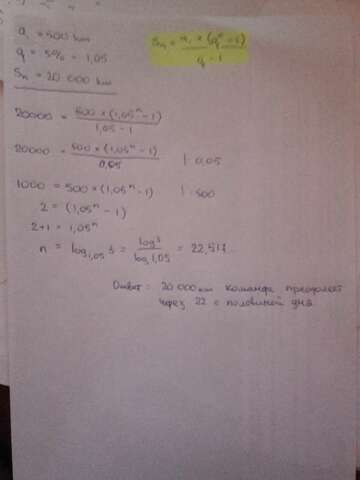 a₁ = 500 km
q = 5% = 1,05
Sₙ = 20 000 km
Sₙ = a₁ × (qⁿ - 1) / q - 1
20000 = 500 × (1,05ⁿ - 1) / 1,05 - 1
20000 = 500 × (1,05ⁿ - 1) / 0,05 | · 0,05
1000 = 500 × (1,05ⁿ - 1) | : 500
2 = (1,05ⁿ - 1)
2+1 = 1,05ⁿ
n = log₁,₀₅ 3 = log 3 / log 1,05 = 22,517...
Ответ: 20 000 км команда преодолеет
через 22 с половиной дня.